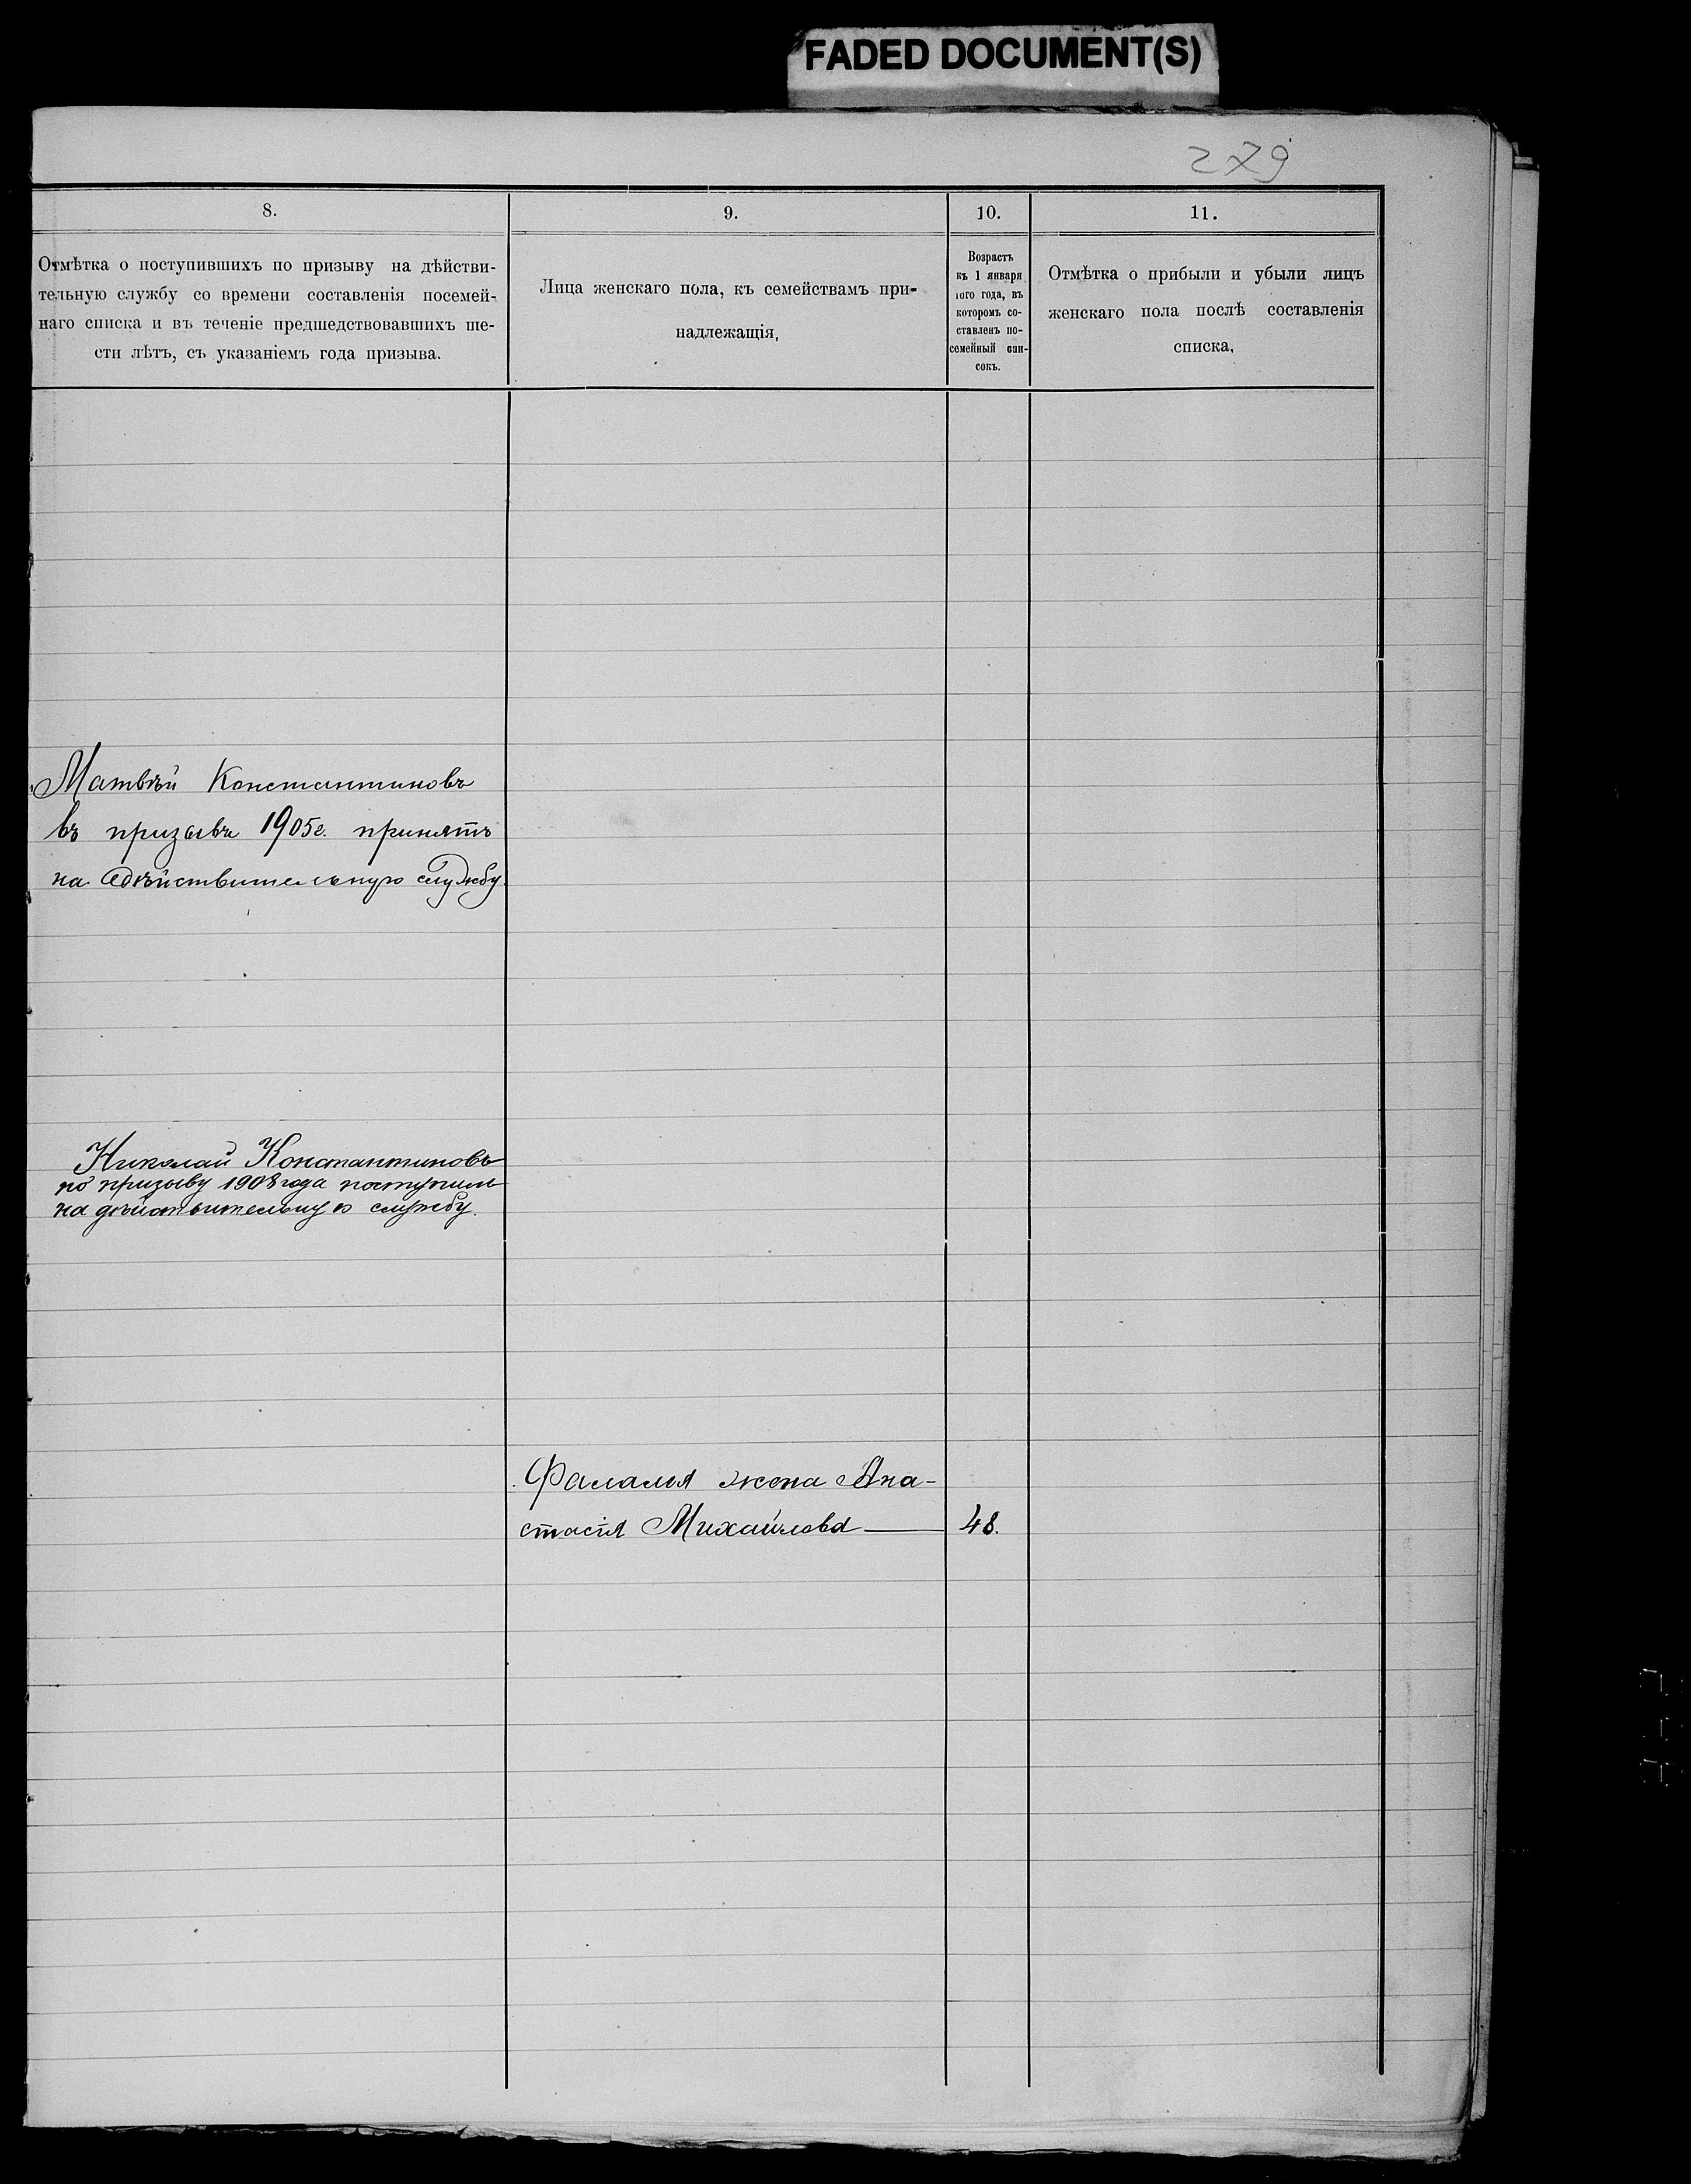 FADED DOCUMENT(S)
279
8.
9.
10.
11.
Отмѣтка о поступившихъ по призыву на дѣйстви-
тельную службу со времени составленія посемей-
наго списка и въ теченіе предшедствовавшихъ ше-
сти лѣтъ, съ указаніемъ года призыва.
Лица женскаго пола, къ семействамъ при-
надлежащія,
Возрастъ
къ 1 января
того года, въ
которомъ со-
ставленъ по-
семейный спи-
сокъ.
Отмѣтка о прибыли и убыли лицъ
женскаго пола послѣ составленія
списка,
Матвѣй Константиновъ
въ призывъ 1905г. принятъ
на дѣйствительную службу
Николай Константиновъ
по призыву 1908 года поступилъ
на дѣйствительную службу.
Фалалея жена Ана-
стасія Михайлова — 48.